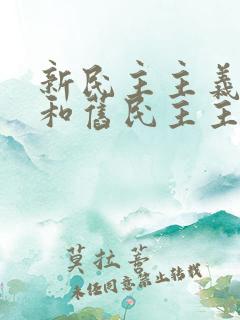 新民主主義
和舊民主主
莫拉善
未经同意禁止转载